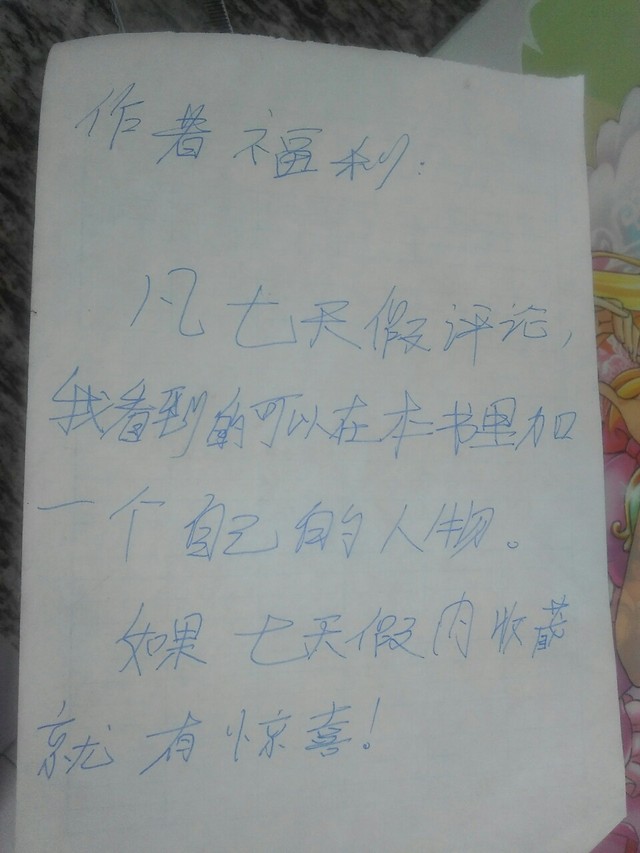 作者福利:
凡七天假评论,
我看到的可以在本书里加
一个自己的人物。
如果七天假内收藏
就有惊喜!